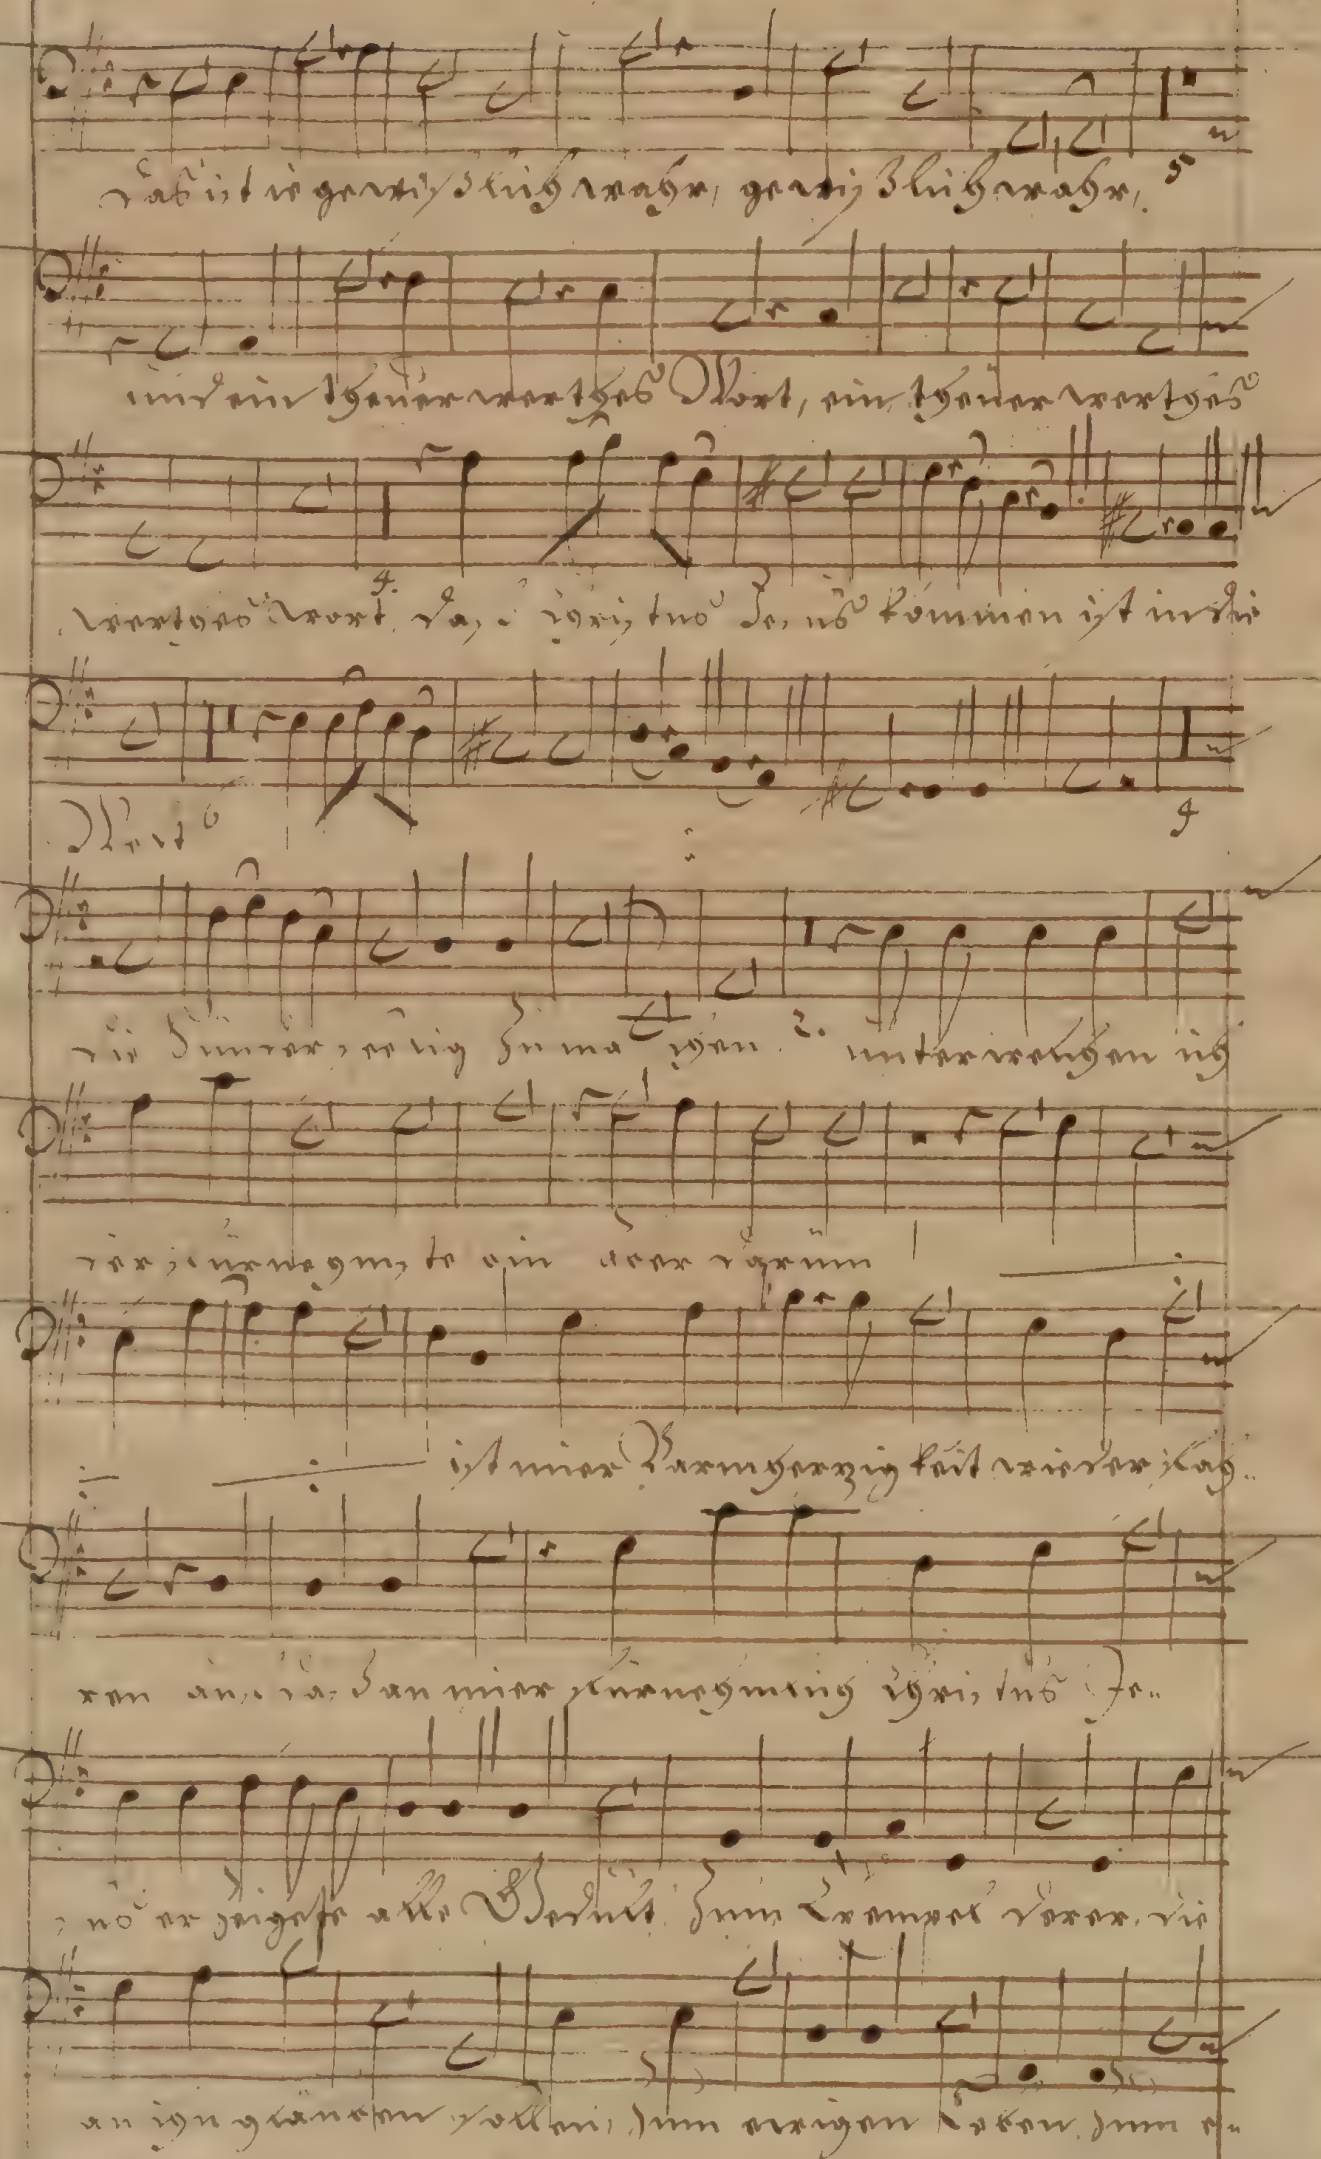 das ist ie gewißlich wahr, gewißlich wahr, 5
und ein theüer werthes Wort, ein theüer werthes
werthes wort. 4. das Christus Jesus kommen ist in die
Welt 6 4
die Sünder seelig zu machen. 2. unter welchen ich
der fürnehmste bin aber darüm
ist mier Barmherzigkeit wiederfah-
ren auf das an mier fürnehmlich Christus Je-
sus erzeigete alle Gedult, zum Exempel derer, die
an ihn gläuben sollen, zum ewigen Leben, zum e-